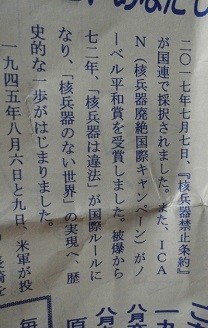 二〇一七年七月七日、『核兵器禁止条約』
が国連で採択されました。また、ICA
N（核兵器廃絶国際キャンペーン）がノ
ーベル平和賞を受賞しました。被爆から
七二年、「核兵器は違法」が国際ルールに
なり、「核兵器のない世界」の実現へ、歴
史的な一歩がはじまりました。
一九四五年八月六日と九日、米軍が投